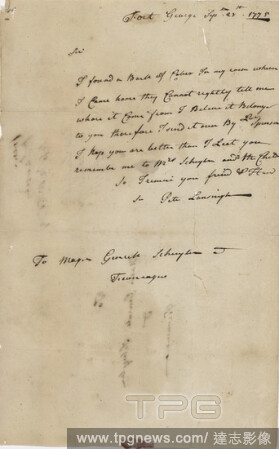 Fort George Sepr 25th 1775
Sir
I found a Barll of Cyder In my room when
I Came home they Cannot rightly tell me
where it Came from I Believe it Belongs
to you therefore I send it over By Leut
I Hope you are better than I Left you
remember me to Mrs Schuyler and the Child
So I remain your friend &
So Peter Lansingh
To Major General Schuyler at
Ticonderoga
TPG
www.tpgnews.com/達志影像